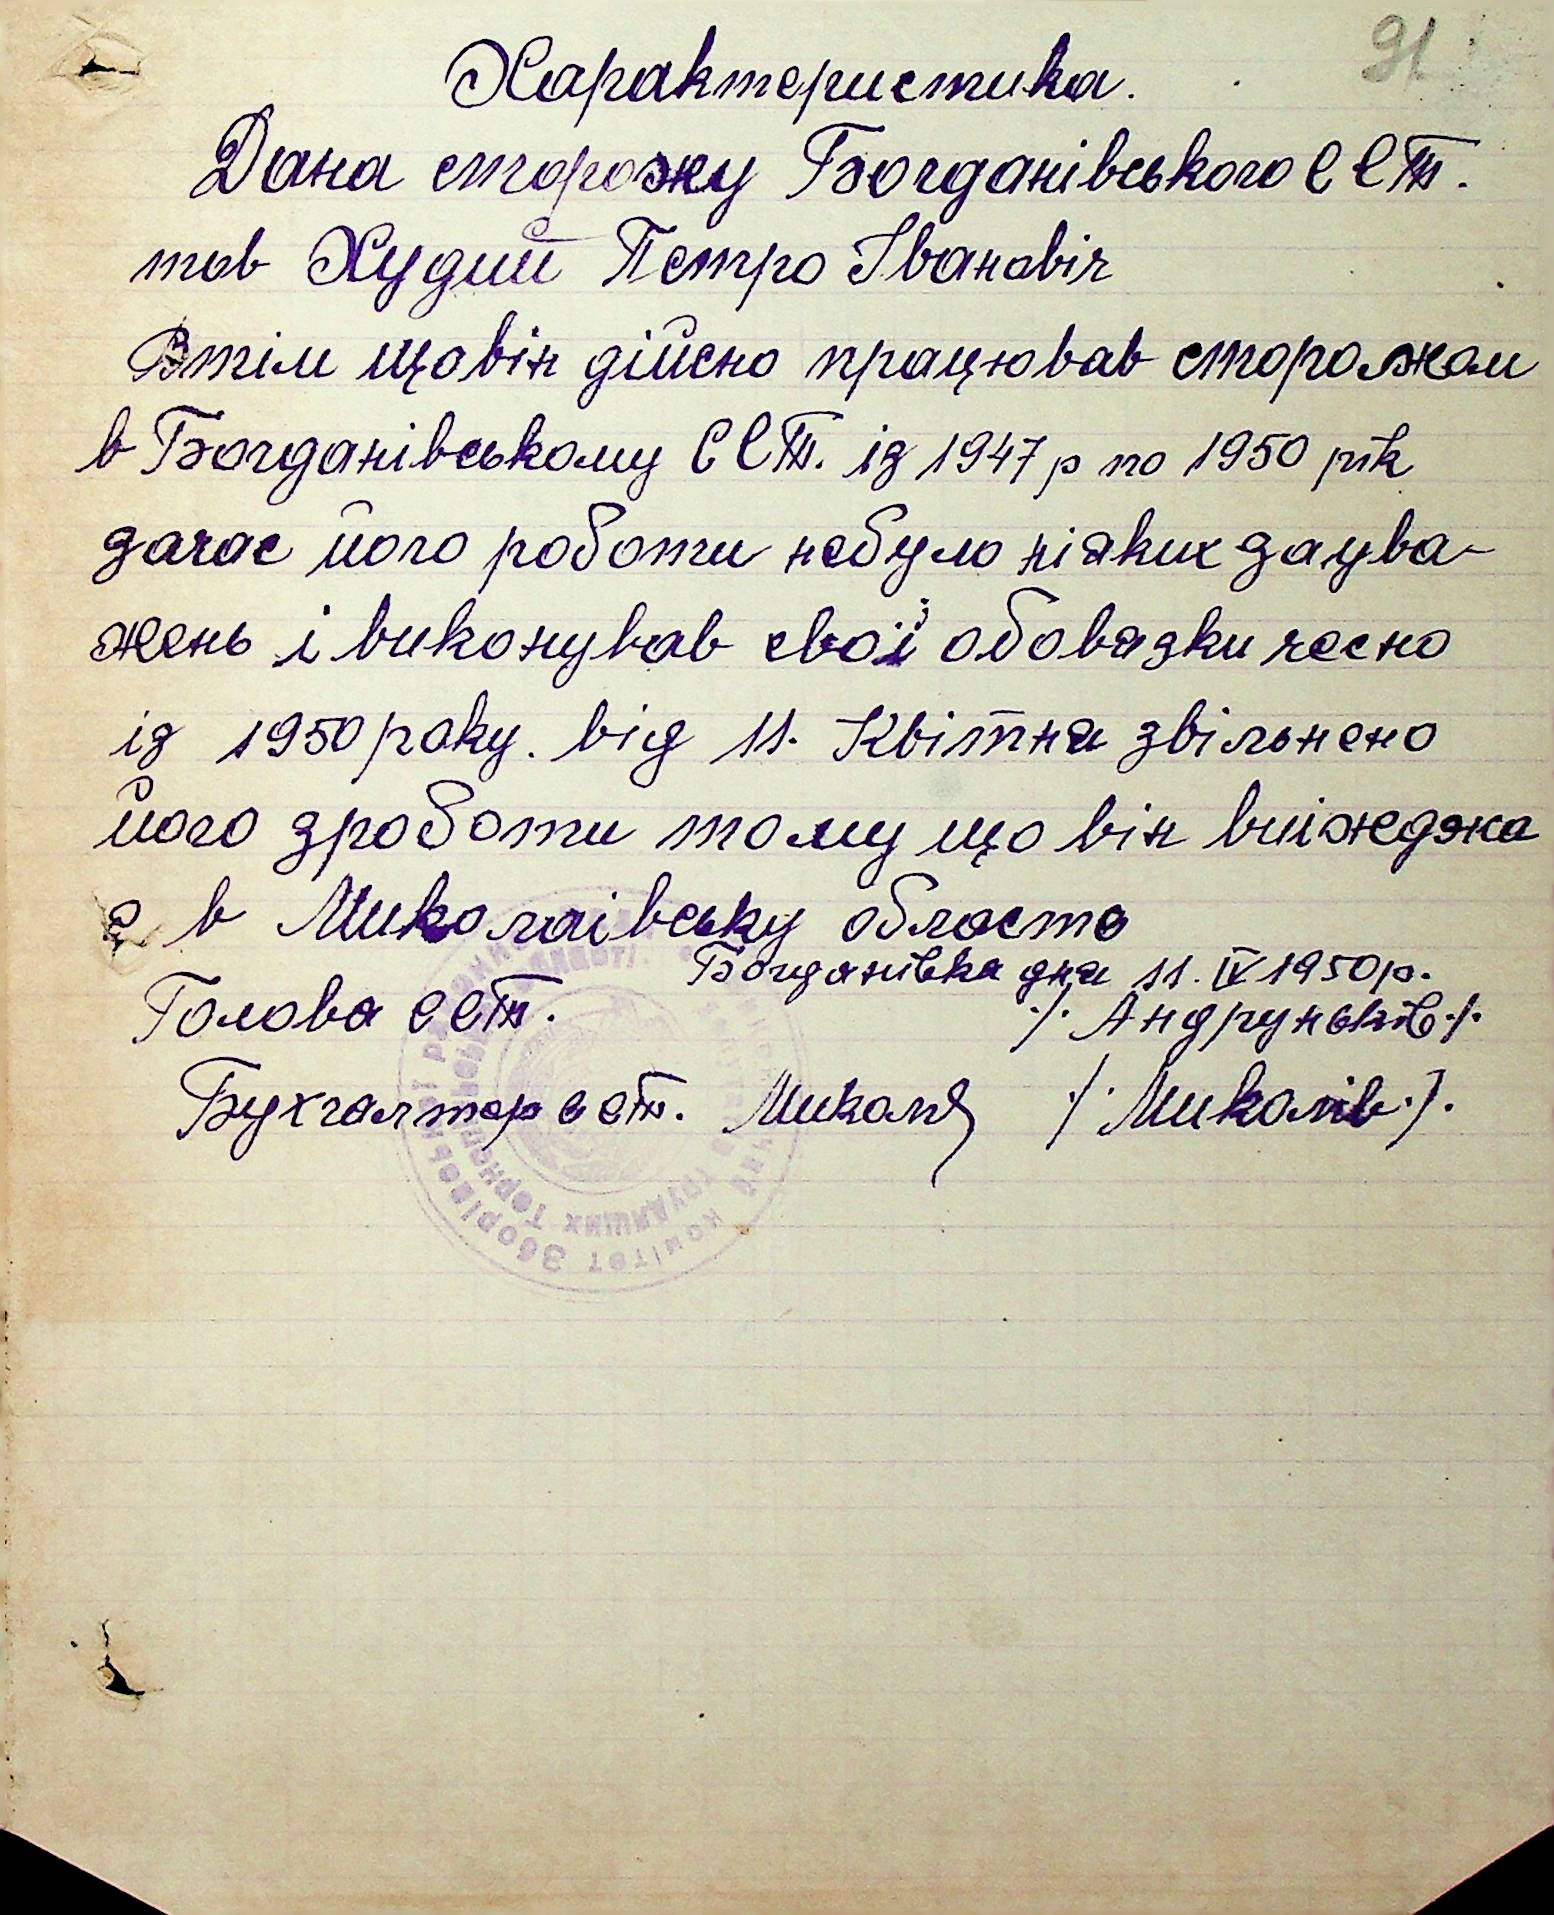 91
Характеристика.
Дана сторожу Богданівського ССТ.
тов Худий Петро Івановіч
Втім щовін дійсно працював сторожом
в Богданівському ССТ. із 1947 р по 1950 рік
зачас його роботи небуло ніяких заува-
жень і виконував свої обовязки чесно
із 1950 року. від 11. Квітня звільнено
його зроботи тому що він виіжджа
є в Миколаівську область
Богданівка дня 11. IV 1950 р.
Голова ССТ. /. Андруньків ./.
Бухгалтер ССТ. /. Миколів ./.
комітет Зборівської
трудящих Терноп